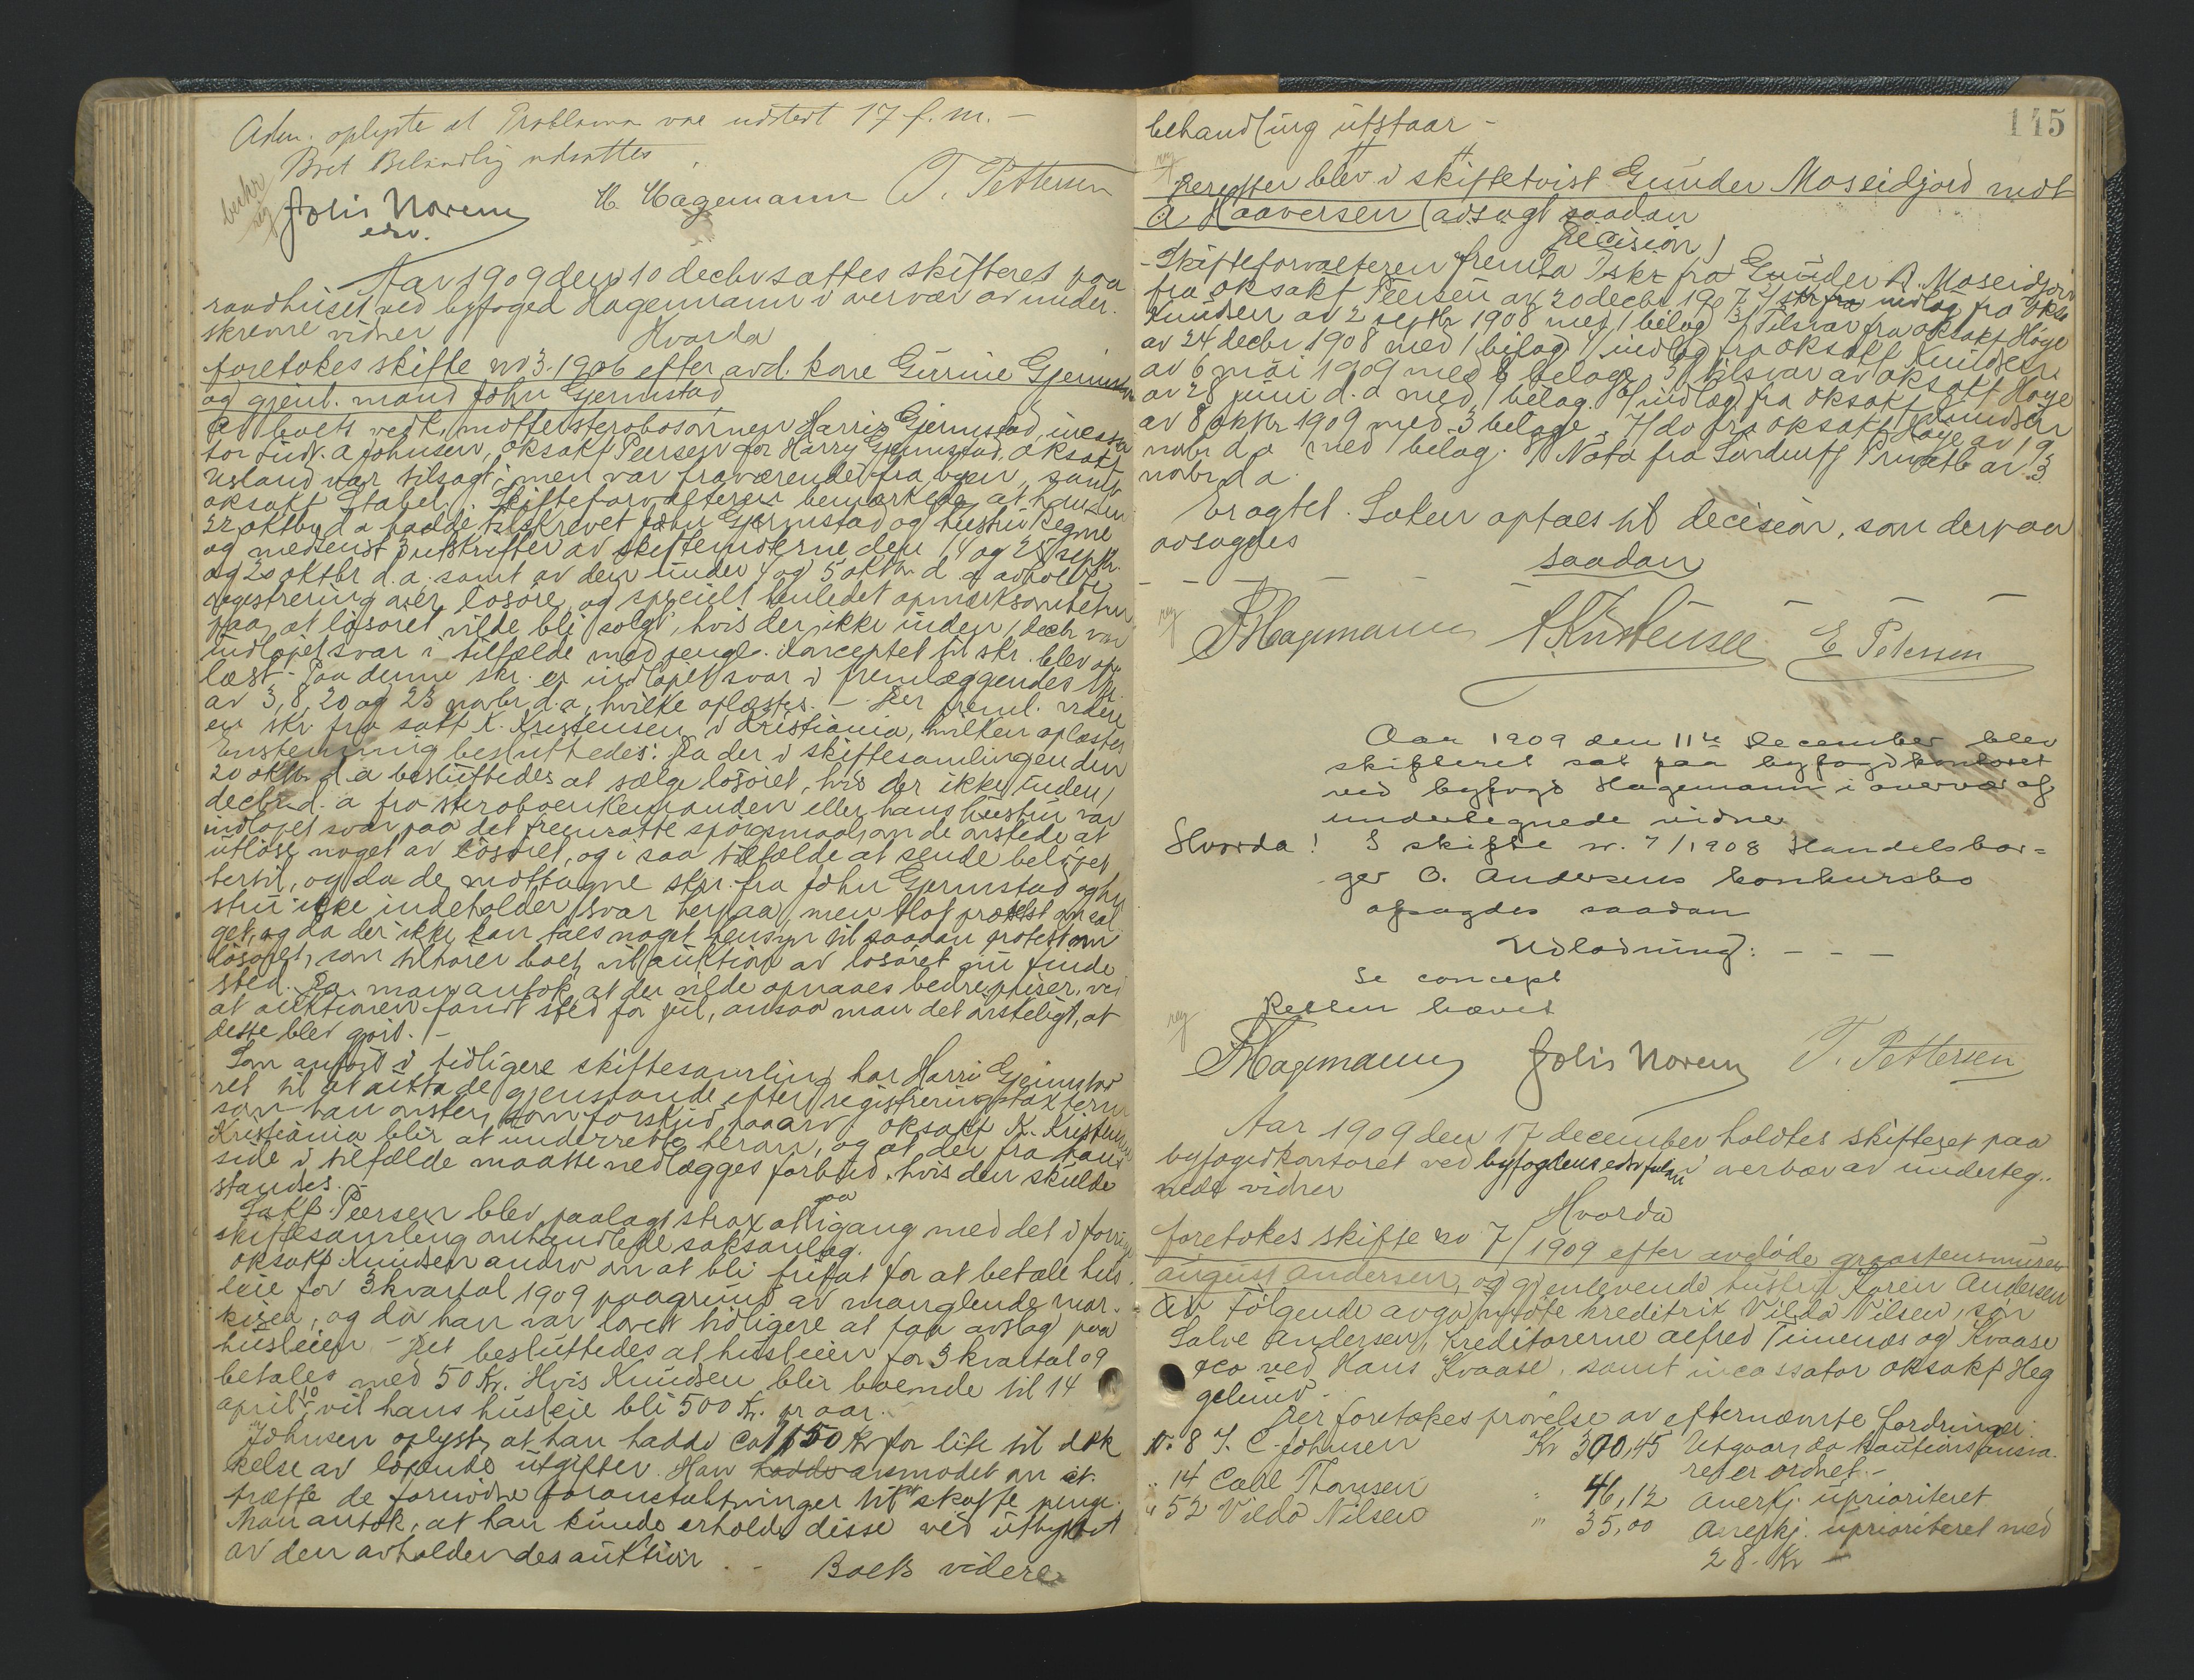 Adm. oplyste at Proklama var udstedt 17 f. m. —
Boet Behandlig udsattes.
bekr
reg
Jolis Norem
edsv.
H. Hagemann T. Pettersen
Aar 1909 den 10 decbr sattes skifteret paa
raadhuset ved byfoged Hagemann i overvær av under-
skrevne vidner
Hvorda
foretokes skifte no 3. 1906 efter avd. kone Gurine Gjermstad
og gjenl. mand John Gjermstad
At boets vedk. møtte sterobosønnen Harris Gjermstad, incassa
tor Ludv. A Johnsen, oksakf Peersen for Harry Gjermstad. Oksakf
Usland var tilsagt, men var fraværende fra byen, samt
oksakf Stabel. Skifteforvalteren bemærkede, at han den
22 oktbr d. a. hadde tilskrevet John Gjermstad og hustru Regine
og medsendt utskrifter av skiftemøterne den 14 og 25 septbr.
og 20 oktbr d. a. samt av den under 4 og 5 oktbr. d. a avholdte
registrering over løsøre, og specielt henledet opmærksomheten
paa, at løsøret vilde bli solgt, hvis der ikke inden 1 decbr var
indløpet svar i tilfælde med penge. Konceptet til skr. blev op-
læst. - Paa denne skr. er indløpet svar i fremlæggendes skr.
av 3, 8, 20 og 23 novbr d. a, hvilke oplæstes. — Der freml. videre
en skr. fra sakf K. Kristensen i Kristiania, hvilken oplæstes
Enstemmig besluttedes: Da der i skiftesamlingen den
20 oktbr. d. a besluttedes at sælge løsøret, hvis der ikke inden 1
decbr d. a fra sterboenkemanden eller hans hustru var
indløpet svar paa det fremsatte spørgsmaal om de ønskede at
utløse noget av løsøret, og i saa tilfælde at sende beløpet
hertil, og da de mottagne skr. fra John Gjermstad og hu
stru ikke indeholder svar herpaa, men blot protest mot sal
get, og da der ikke kan taes noget hensyn til saadan protest om
løsøret, som tilhører boet, vil auktion av løsøret nu finde
sted. Da man antok, at der vilde opnaaes bedre priser, ved
at auktionen fandt sted før jul, ansaa man det ønskeligt, at
dette blev gjort. —
Som anført i tidligere skiftesamling har Harris Gjermstad
ret til at utta de gjenstande efter registreringstaxterne
som han ønsker, som forskud paa arv. Oksakf K. Kristensen
Kristiania blir at underrette herom, og at der fra hans
side i tilfælde maatte nedlægges forbud, hvis den skulde
standses. -
Sakf. Peersen blev paalagt strax at gaa igang med det i forrige
skiftesamling omhandlede saksanlæg.
Oksakf. Knudsen androg om at bli fritat for at betale hus
leie for 3 kvartal 1909 paagrund av manglende mar-
kiser, og da han var lovet tidligere at faa avslag paa
husleien - Det besluttedes at husleien for 3 kvartal 09
betales med 50 Kr. Hvis Knudsen blir boende til 14
april 10 vil hans husleie bli 500 Kr. pr aar.
Johnsen oplyste, at han hadde ca 1150 Kr for lite til dæk
kelse av løpende utgifter. Han hadde anmodet om at
træffe de fornødne foranstaltninger til at skaffe penge.
Man antok, at han kunde erholde disse ved utbyttet
av den avholdendes auktion. - Boets videre
145
behandling utstaar -
reg
Derefter blev i skiftetvist Gunder Moseidjord mot
A Haaversen (avsagt saadan
Decision)
- Skifteforvalteren fremla 1 skr fra Gunder A. Moseidjord
fra oksakf Peersen av 20 decbr 1907 2/ skr fra indlæg fra oksakf
Knudsen av 2 septbr 1908 med 1 bilag 3/ Tilsvar fra oksakf Høye
av 24 decbr 1908 med 1 bilag 4/ indlæg fra oksakf Knudsen
av 6 mai 1909 med 6 bilage 5/ tilsvar av oksakf Høye
av 28 juni d. a med 1 bilag. 6/ indlæg fra oksakf Knudsen
av 8 oktbr 1909 med 3 bilage. 7/ do fra oksakf Høye av 19
novbr d a med 1 belag. 8/ Nota fra Sørdurtz Privatb av 3
novbr d. a.
Eragtet. Saken optaes til decision, som derpaa
avsagdes
saadan
reg
FHagemann A. Kristensen E Petersen
Aar 1909 den 11te December blev
skifteret sat paa byfogdkontoret
ved byfogd Hagemann i overvær af
undertegnede vidner
Hvorda! I skifte nr. 7/1908 Handelsbor=
ger O. Andersens konkursbo
afsagdes saadan
Udlodning: - - -
Se concept
Retten hævet
reg
FHagemann Jolis Norem T. Pettersen
Aar 1909 den 17 december holdtes skifteret paa
byfogedkontoret ved byfogdens edsv fuldm i overvær av underteg-
nede vidner
Hvorda
foretokes skifte no 7/1909 efter avdøde graastensmurer
August Andersen, og gjenlevende hustru Karen Andersen
Av Følgende avga møte kreditrix Vilda Nilsen, søn
Salve Andersen, kreditorerne Alfred Timenes og Kvaase
& co ved Hans Kvaase, samt incassator oksakf Heg
gelund.
Der foretokes prøvelse av efternævnte fordringer:
No 8 J. C. Johnsen Kr 300,45 Utgaar, da kautionsansva-
ret er ordnet. -
" 14 Carl Thomsen " 46,12 Anerkj. uprioriteret
" 52 Vilda Nilsen " 35,00 Anerkj. uprioriteret med
28 - Kr —